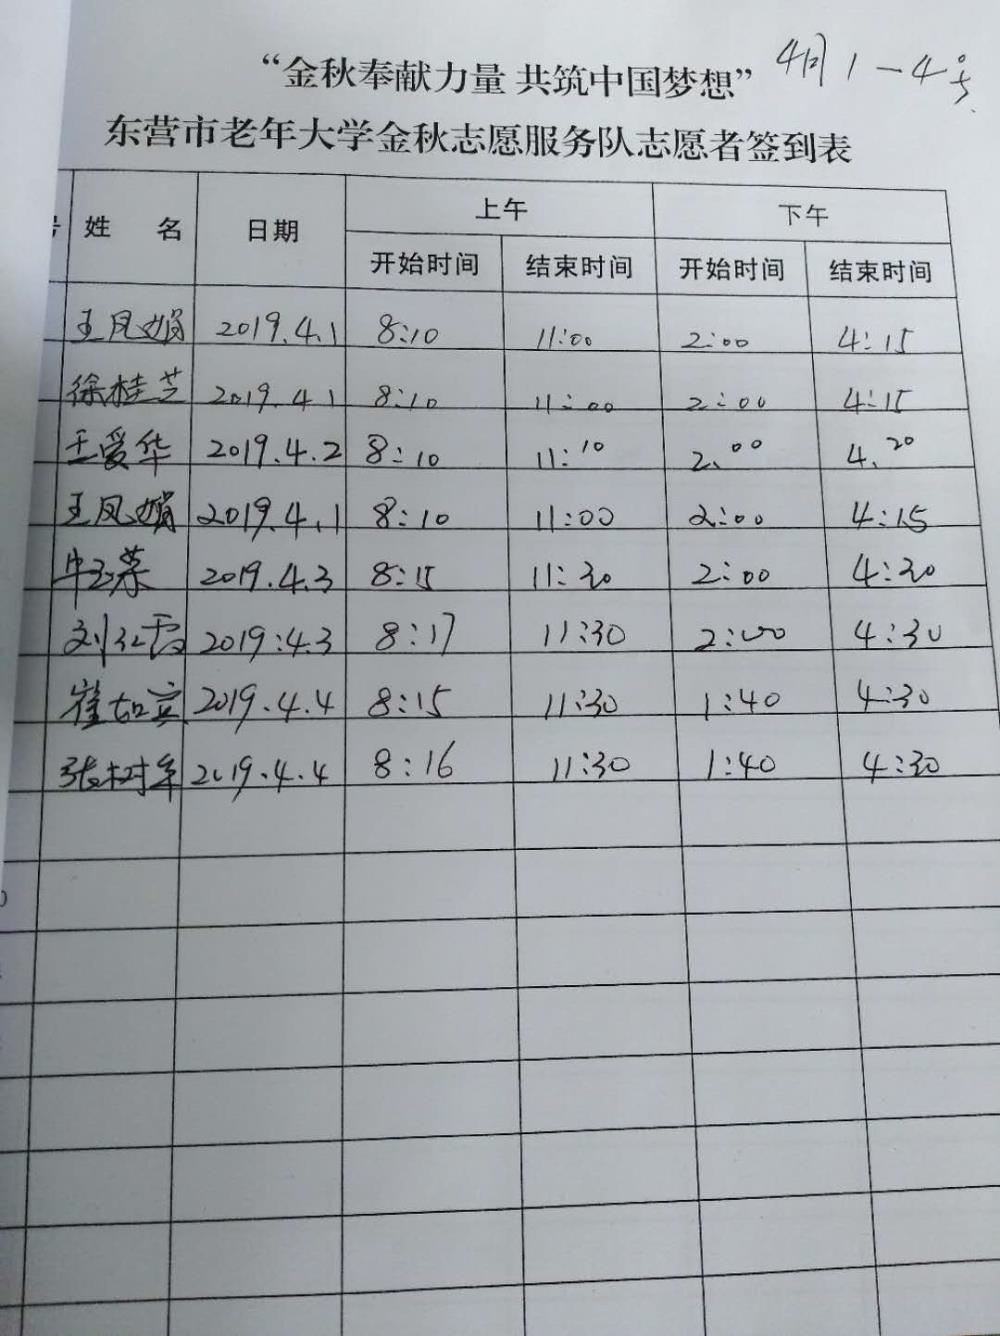 4月1-4号
“金秋奉献力量 共筑中国梦想”
东营市老年大学金秋志愿服务队志愿者签到表
号 姓 名 日期 上午 下午
开始时间 结束时间 开始时间 结束时间
王凤娟 2019.4.1 8:10 11:00 2:00 4:15
徐桂芝 2019.4.1 8:10 11:00 2:00 4:15
王爱华 2019.4.2 8:10 11:10 2.00 4.20
王凤娟 2019.4.1 8:10 11:00 2:00 4:15
牛玉荣 2019.4.3 8:15 11:30 2:00 4:30
刘红霞 2019:4.3 8:17 11:30 2:00 4:30
崔如 2019.4.4 8:15 11:30 1:40 4:30
张树 2019.4.4 8:16 11:30 1:40 4:30